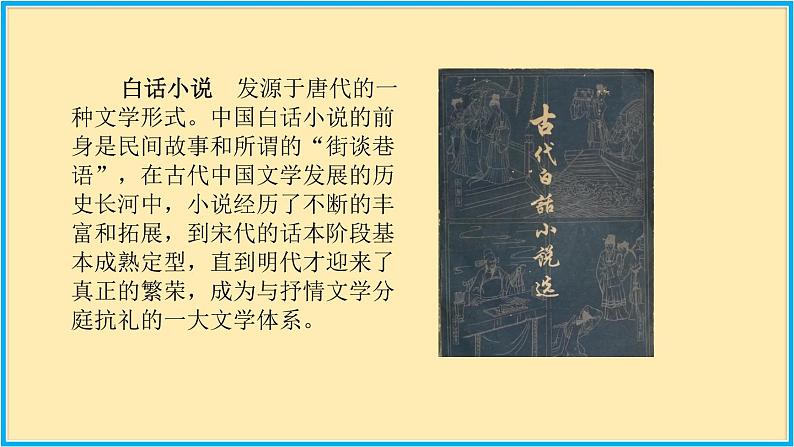 白话小说　发源于唐代的一
种文学形式。中国白话小说的前
身是民间故事和所谓的“街谈巷
语”，在古代中国文学发展的历
史长河中，小说经历了不断的丰
富和拓展，到宋代的话本阶段基
本成熟定型，直到明代才迎来了
真正的繁荣，成为与抒情文学分
庭抗礼的一大文学体系。
古代白话小说选